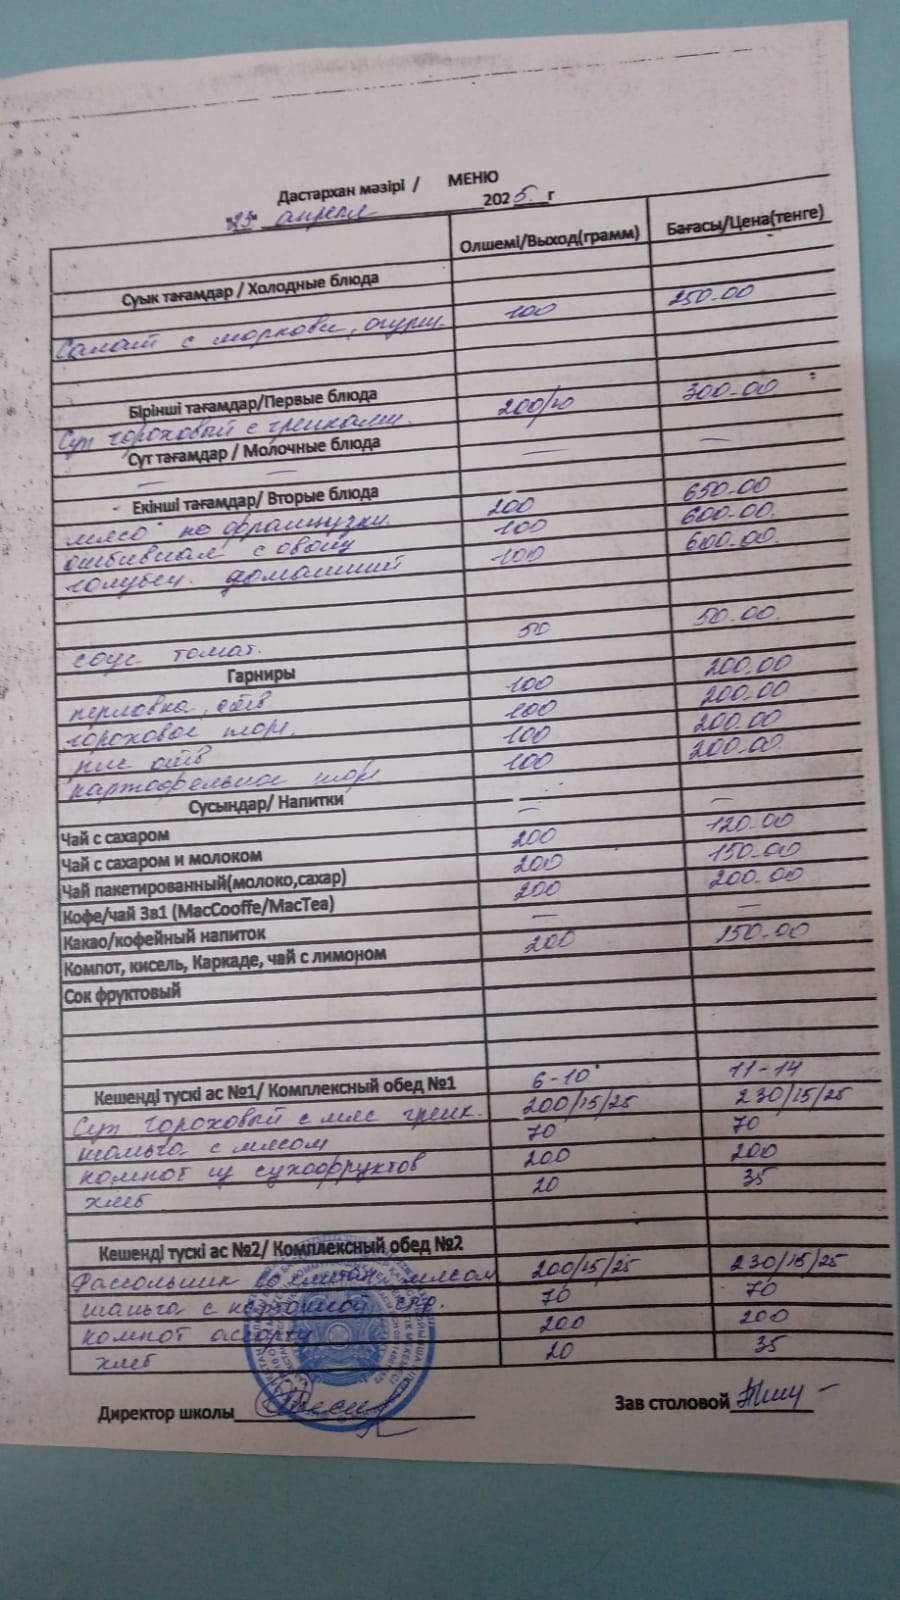 Дастархан мәзірі / МЕНЮ
"23" апреля 2025 г
Олшемі/Выход(грамм) Бағасы/Цена(тенге)
Суык тағамдар / Холодные блюда
Салат с моркови, огурц. 100 250-00
Бірінші тағамдар/Первые блюда
Суп гороховый с гренками. 200/10 300-00
Сүт тағамдар / Молочные блюда — —
— —
- Екінші тағамдар/ Вторые блюда
мясо по французки 200 650-00
отбивная с овощ 100 600-00
голубец домашний 100 600-00
соус томат. 50 50-00
Гарниры
перловка отв 100 200-00
гороховое пюре. 100 200-00
рис отв 100 200-00
картофельное пюре 100 200-00
Сусындар/ Напитки
Чай с сахаром — —
Чай с сахаром и молоком 200 120-00
Чай пакетированный(молоко,сахар) 200 150-00
Кофе/чай 3в1 (MacCooffe/MacTea) 200 200-00
Какао/кофейный напиток — —
Компот, кисель, Каркаде, чай с лимоном 200 150-00
Сок фруктовый
Кешенді тускі ас №1/ Комплексный обед №1 6-10 11-14
Суп гороховый с мяс гренк. 200/15/25 230/15/25
шаньга с мясом 70 70
компот из сухофруктов 200 200
хлеб 20 35
Кешенді тускі ас №2/ Комплексный обед №2
Рассольник со сметан мясом 200/15/25 230/15/25
шаньга с картошкой 70 70
компот ассорти 200 200
хлеб 20 35
Директор школы Зав столовой